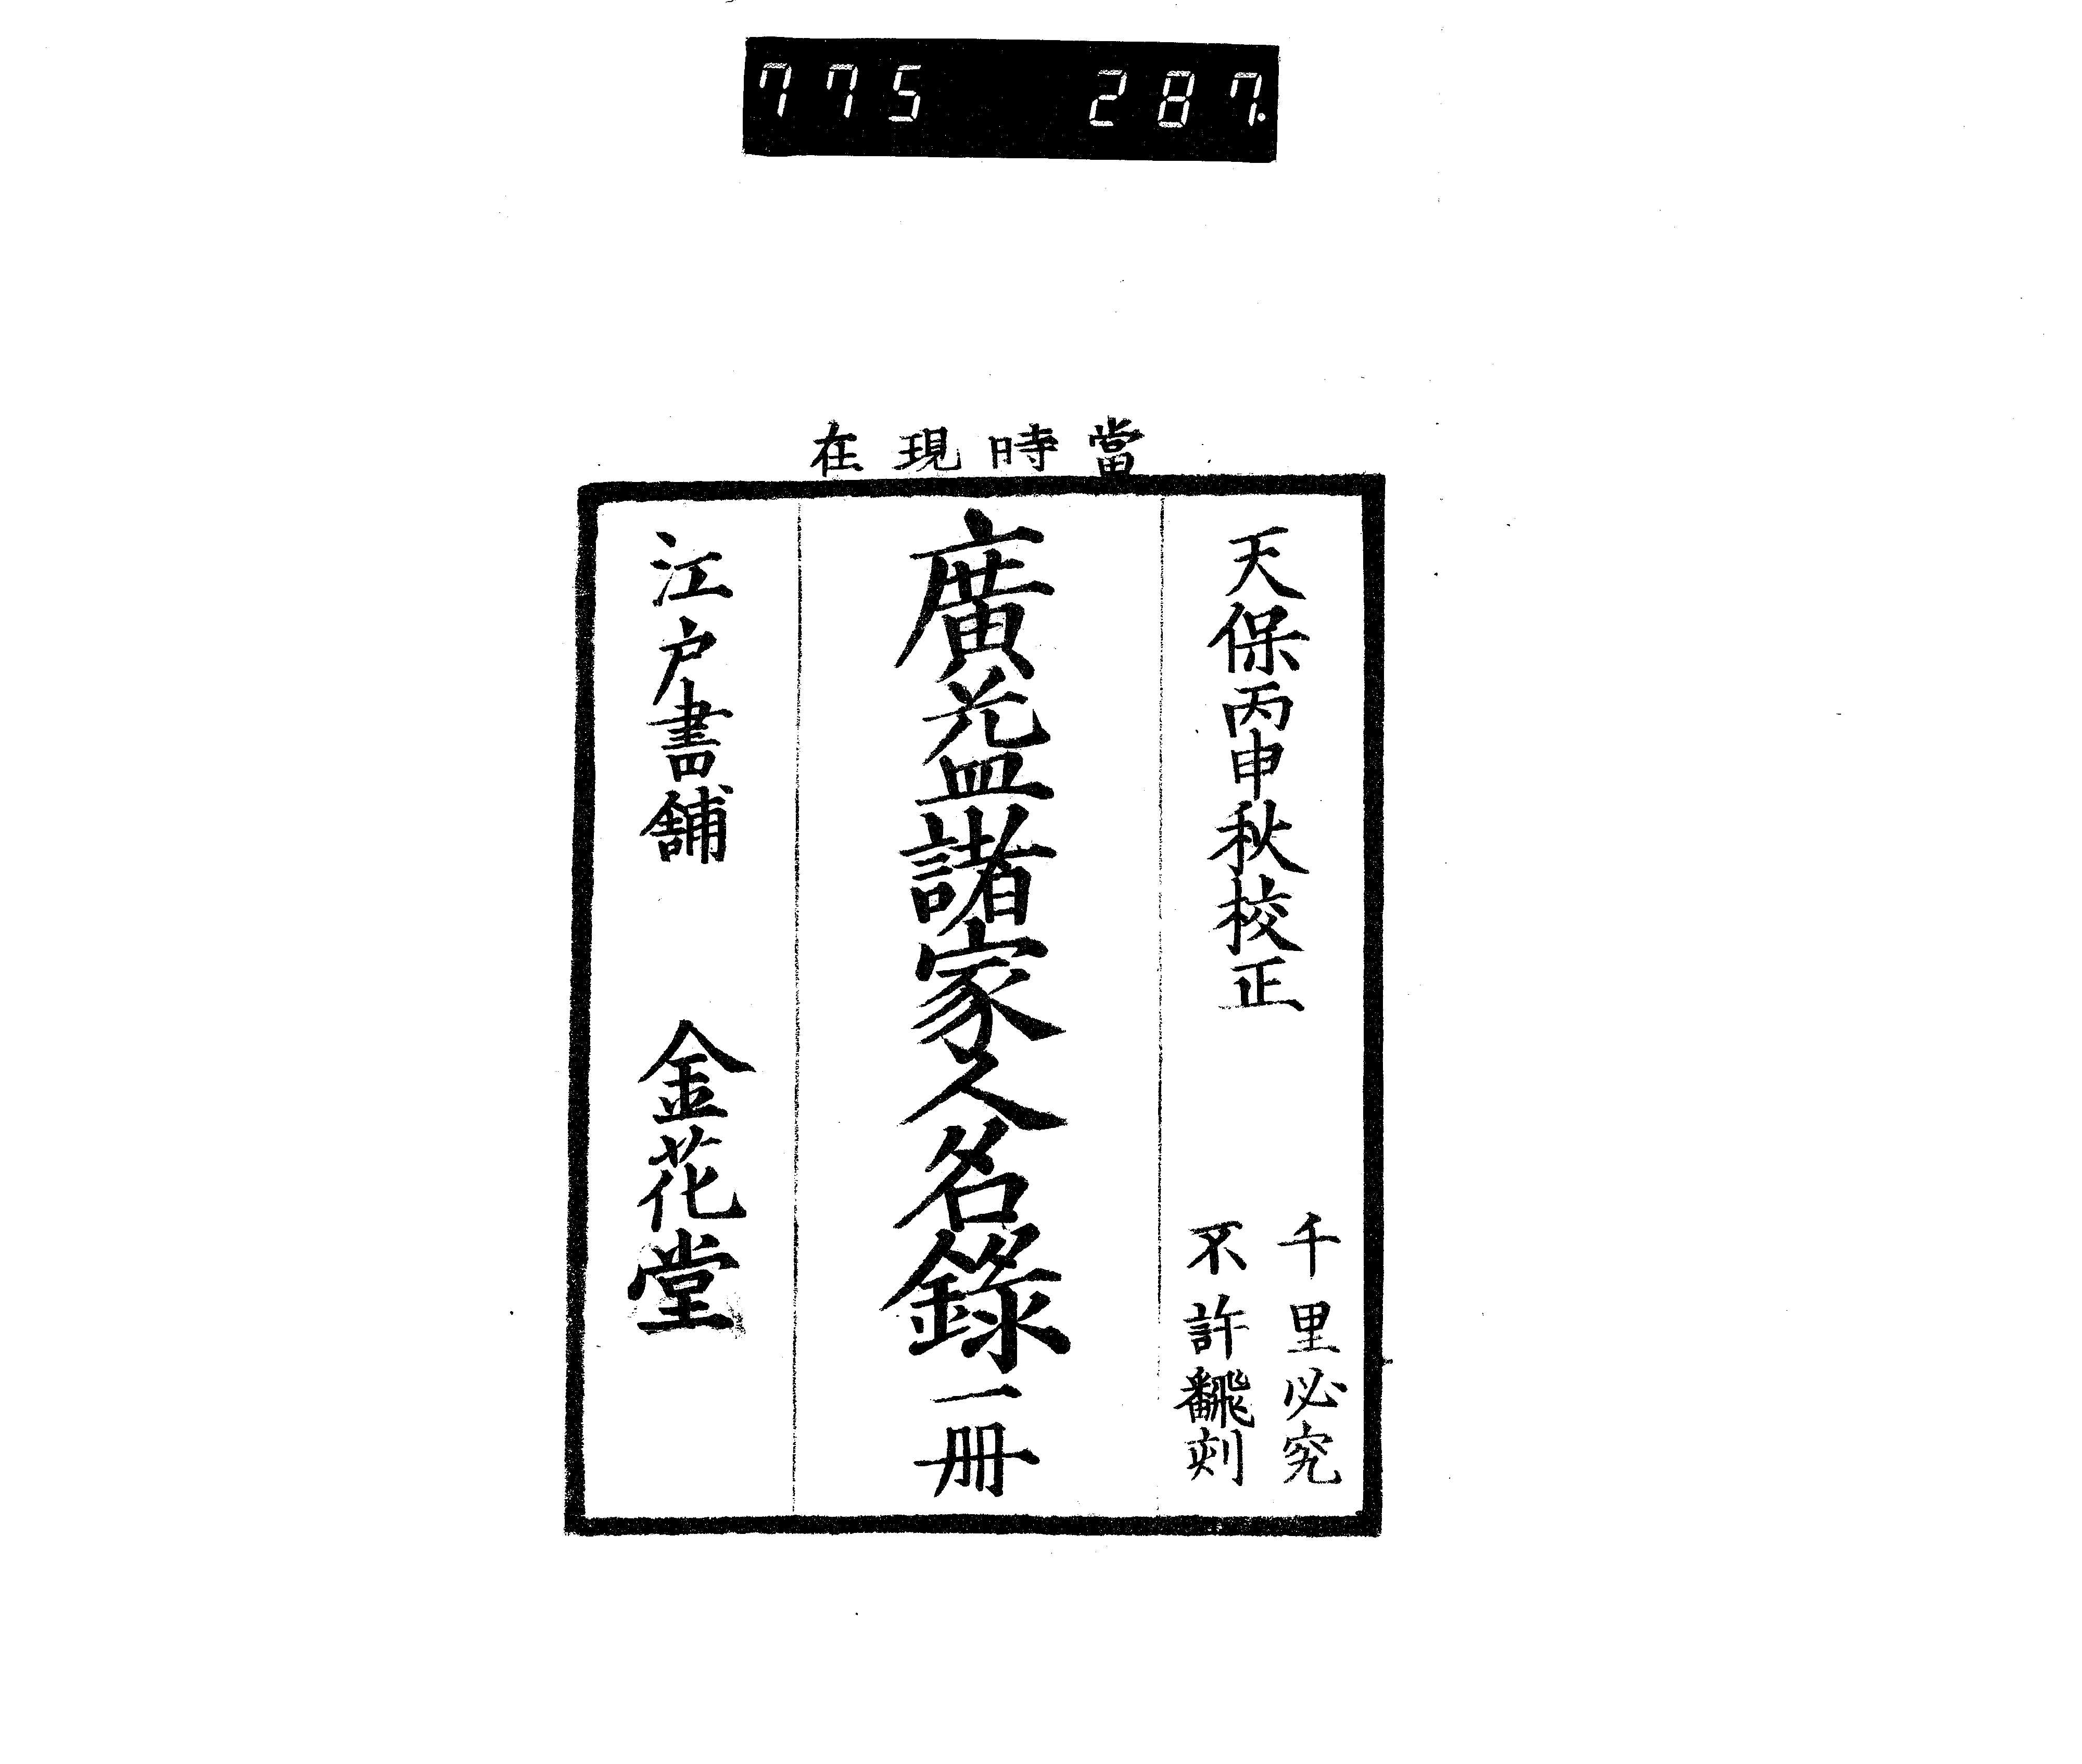 775 287.
當時現在
天保丙申秋校正
千里必究
不許翻刻
廣益諸家人名錄一冊
江戸書舗 金花堂